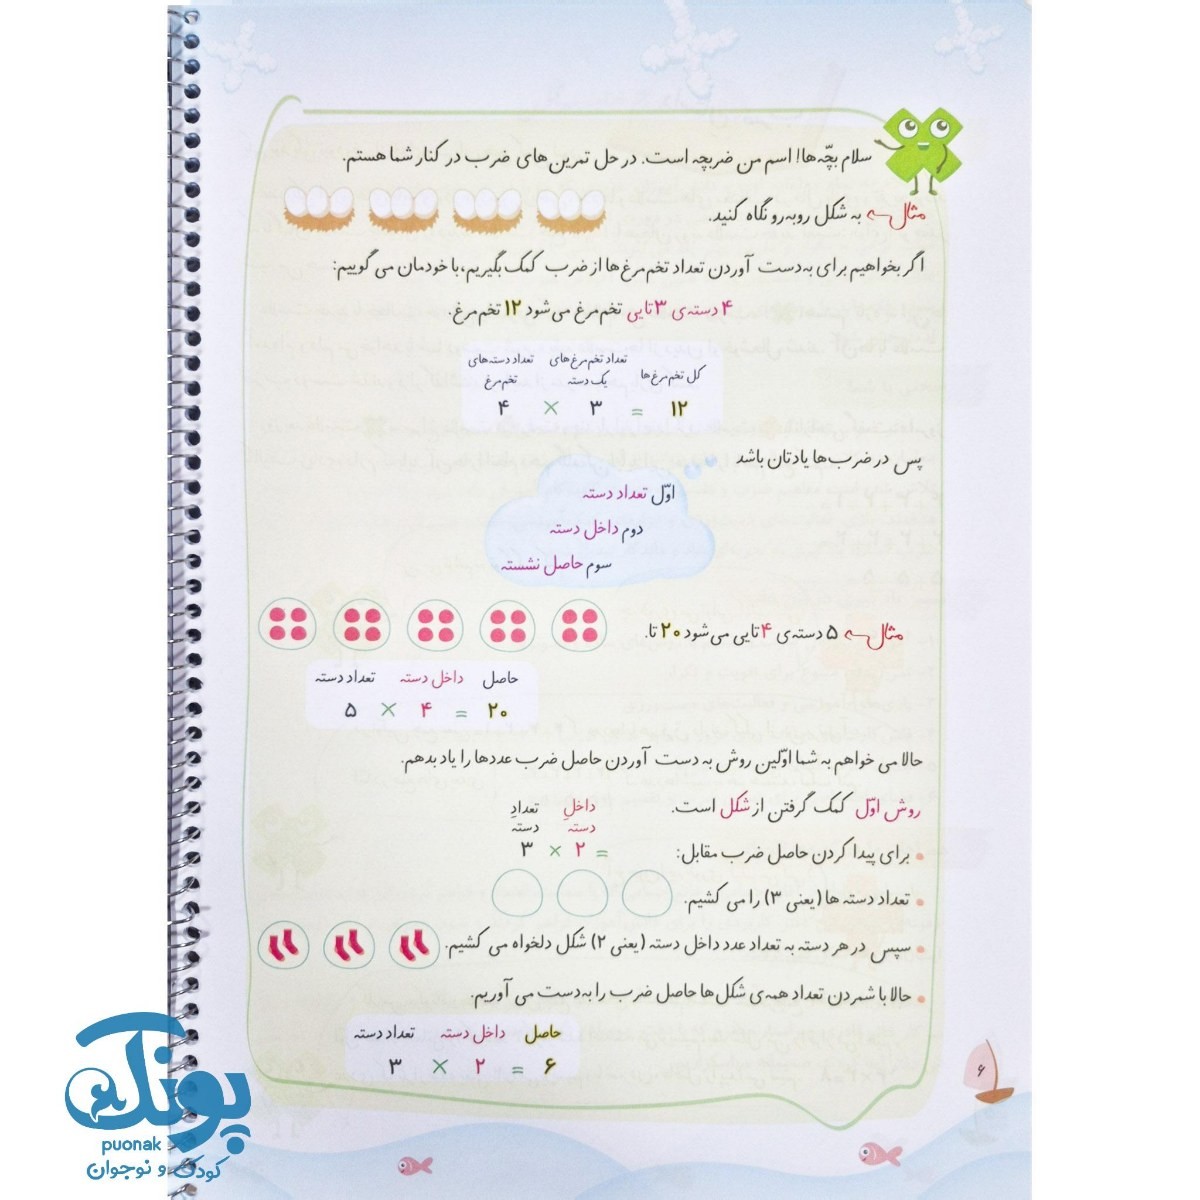 سلام بچّه‌ها! اسم من ضربچه است. در حل تمرین‌های ضرب در کنار شما هستم.
مثال به شکل روبه‌رو نگاه کنید.
اگر بخواهیم برای به‌دست آوردن تعداد تخم‌مرغ‌ها از ضرب کمک بگیریم، با خودمان می‌گوییم:
۴ دسته‌ی ۳تایی تخم‌مرغ می‌شود ۱۲ تخم‌مرغ.
تعداد دسته‌های تخم‌مرغ تعداد تخم‌مرغ‌های یک دسته کل تخم‌مرغ‌ها
۴ × ۳ = ۱۲
پس در ضرب‌ها یادتان باشد
اوّل تعداد دسته
دوم داخل دسته
سوم حاصل نشسته
مثال ۵ دسته‌ی ۴تایی می‌شود ۲۰ تا.
تعداد دسته داخل دسته حاصل
۵ × ۴ = ۲۰
حالا می‌خواهم به شما اوّلین روش به‌دست آوردن حاصل ضرب عددها را یاد بدهم.
روش اوّل کمک گرفتن از شکل است.
تعدادِ دسته داخلِ دسته
• برای پیدا کردن حاصل ضرب مقابل: ۳ × ۲ =
• تعداد دسته‌ها (یعنی ۳) را می‌کشیم.
• سپس در هر دسته به تعداد عدد داخل دسته (یعنی ۲) شکل دلخواه می‌کشیم.
• حالا با شمردن تعداد همه‌ی شکل‌ها حاصل ضرب را به‌دست می‌آوریم.
تعداد دسته داخل دسته حاصل
۳ × ۲ = ۶
۶
پونک
puonak
کودک و نوجوان